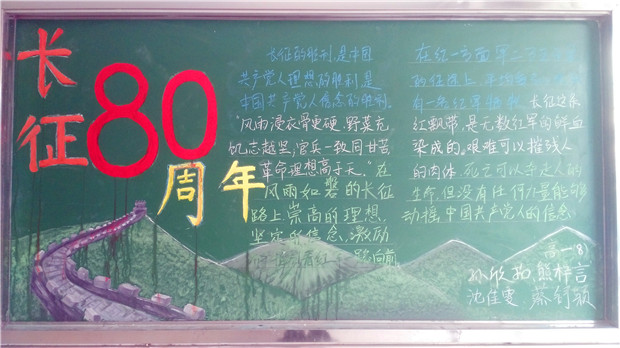 长征80周年
长征的胜利是中国
共产党人理想的胜利是
中国共产党人信念的胜利。
"风雨浸衣骨更硬,野菜充
饥志越坚,官兵一致同甘苦
革命理想高于天。"在
风雨如磐的长征
路上崇高的理想,
坚定的信念,激励
在红一方面军二万五千
的征途上,平均每
有一名红军牺牲。长征这条
红飘带,是无数红军的鲜血
染成的。艰难可以摧残人
的肉体,死亡可以夺走人的
生命,但没有任何力量能够
动摇中国共产党人的信念。
高一(8)